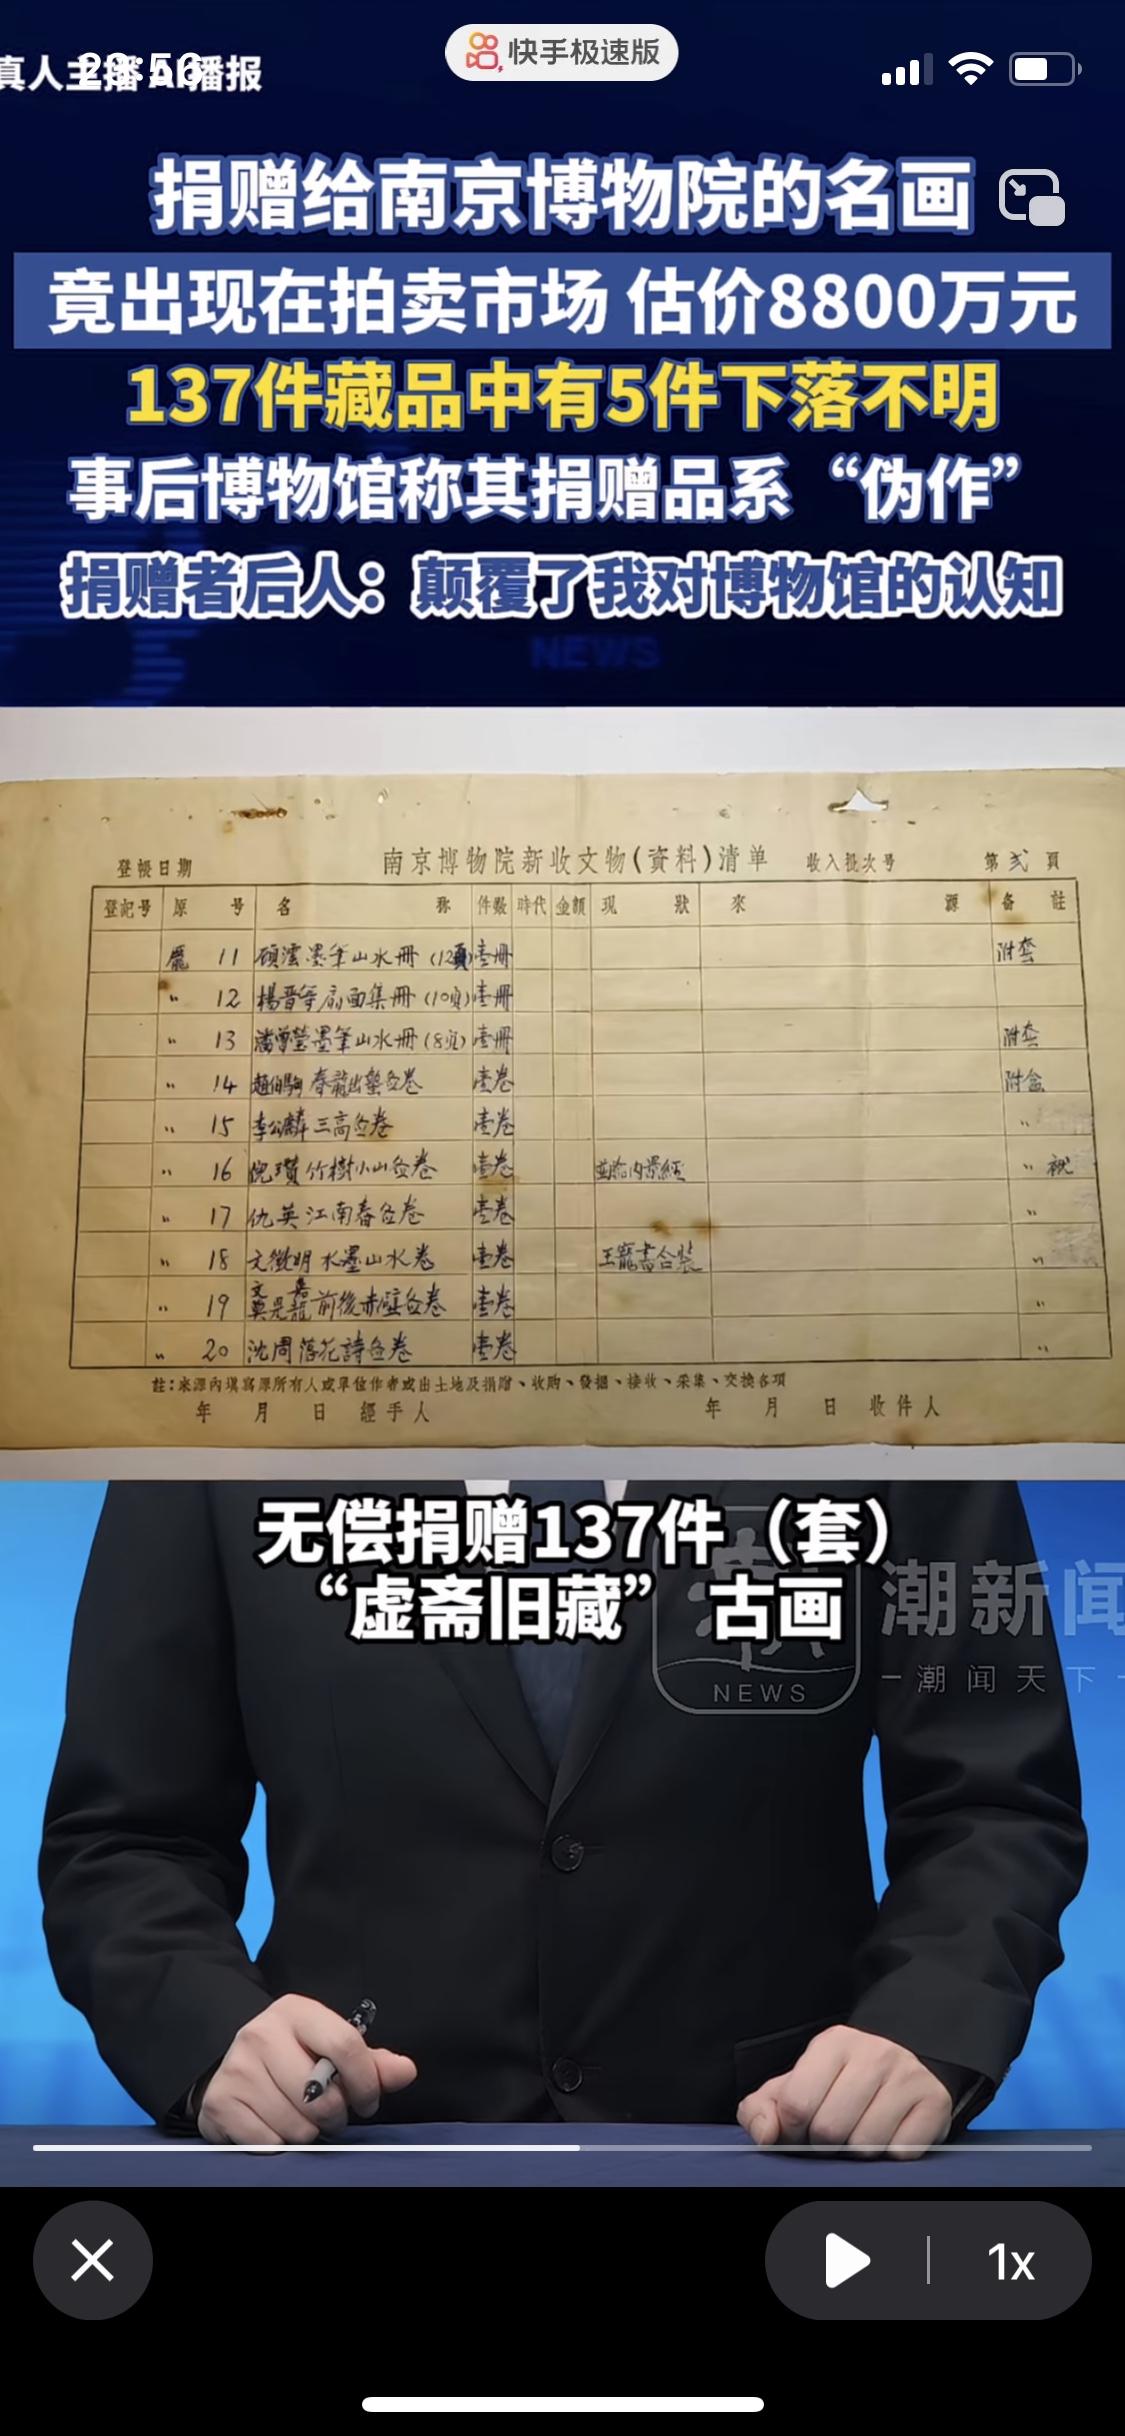 真人主播 AI播报
23:56
快手极速版
捐赠给南京博物院的名画
竟出现在拍卖市场 估价8800万元
137件藏品中有5件下落不明
事后博物馆称其捐赠品系 “伪作”
捐赠者后人：颠覆了我对博物馆的认知
NEWS
登帳日期 南京博物院新收文物(資料)清单 收入批次号 第弍頁
登記号 原号 名称 件数 時代 金額 現狀 來源 备註
龐 11 顧澐墨筆山水冊 (12頁) 壹冊 附套
〃 12 楊晋等扇面集冊 (10頁) 壹冊
〃 13 潘曾瑩墨筆山水冊 (8頁) 壹冊 附套
〃 14 趙伯駒 春龍出蟄卷 壹卷 附盒
〃 15 李公麟 三高卷 壹卷 〃
〃 16 倪瓚 竹樹小山卷 壹卷 内景經 〃
〃 17 仇英 江南春卷 壹卷 〃
〃 18 文徵明 水墨山水卷 壹卷 王寵書合裝 〃
〃 19 文嘉 莫是龍 前後赤壁卷 壹卷 〃
〃 20 沈周 落花詩卷 壹卷 〃
註:來源內填寫原所有人或單位作者或出土地及捐贈、收购、發掘、接收、采集、交換各項
年 月 日 經手人 年 月 日 收件人
无偿捐赠137件（套）
“虚斋旧藏” 古画
潮新闻
NEWS
潮闻天下
1x